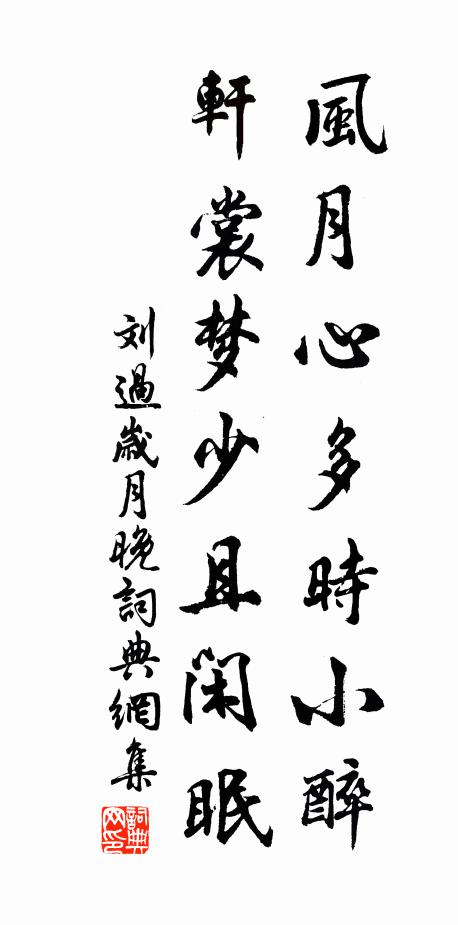 風月心多時小醉
軒裳梦少且闲眠
刘過歲月晚詞典網集
詞典网印